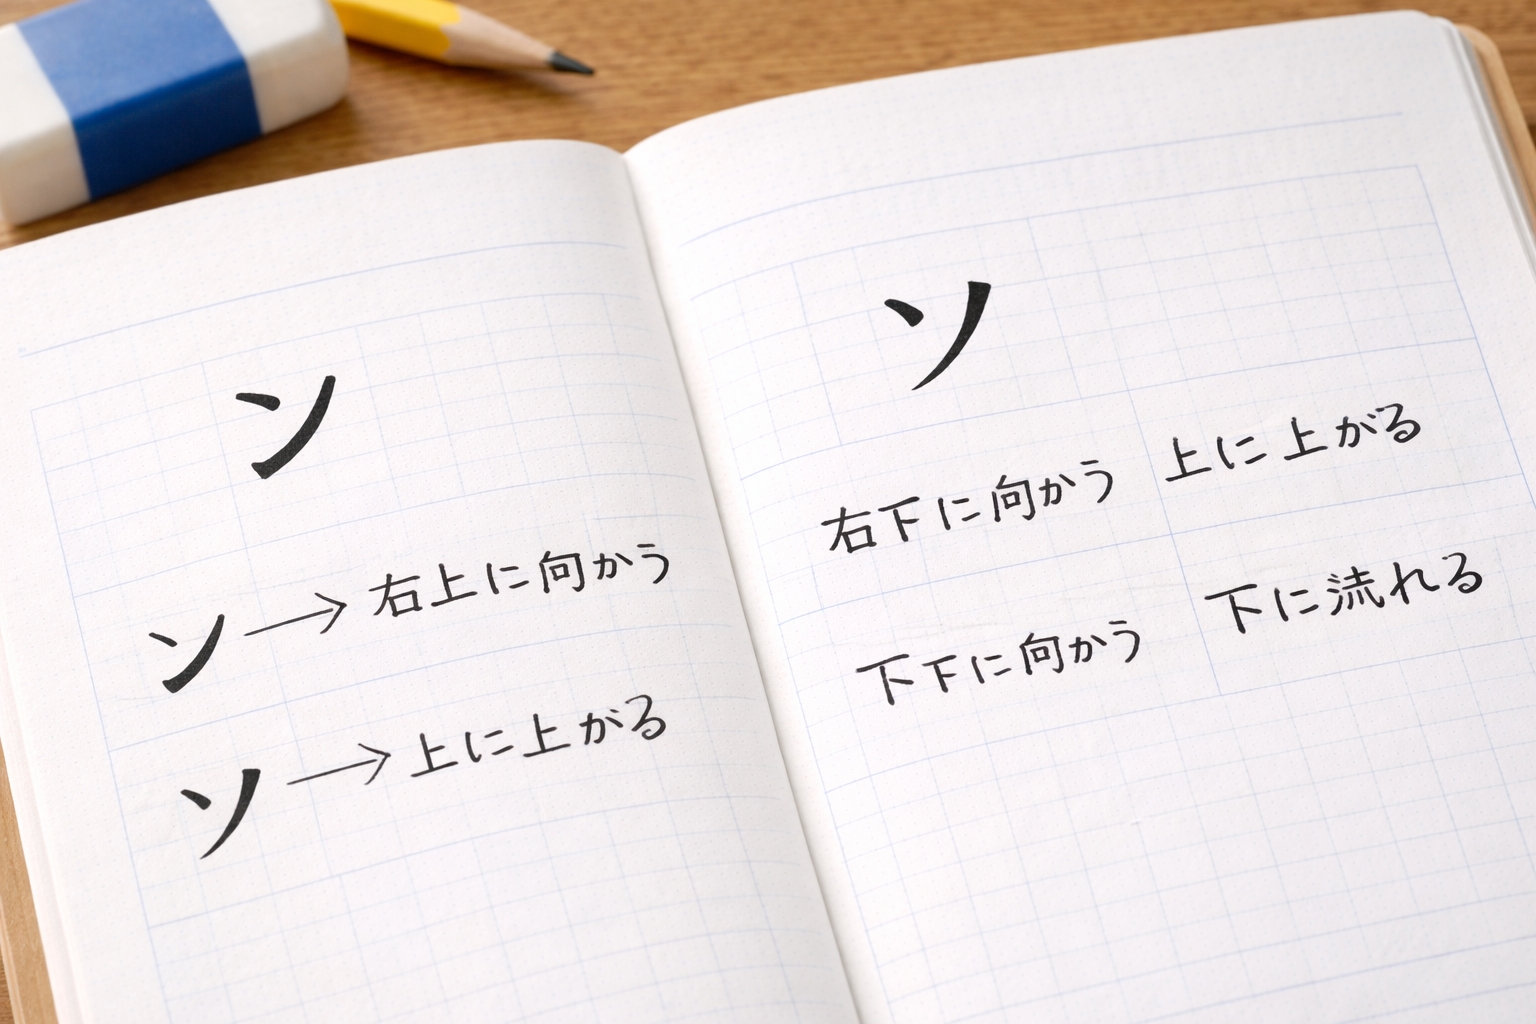 ン
ン→右上に向かう
ソ→上に上がる
ソ
右下に向かう 上に上がる
下下に向かう 下に流れる